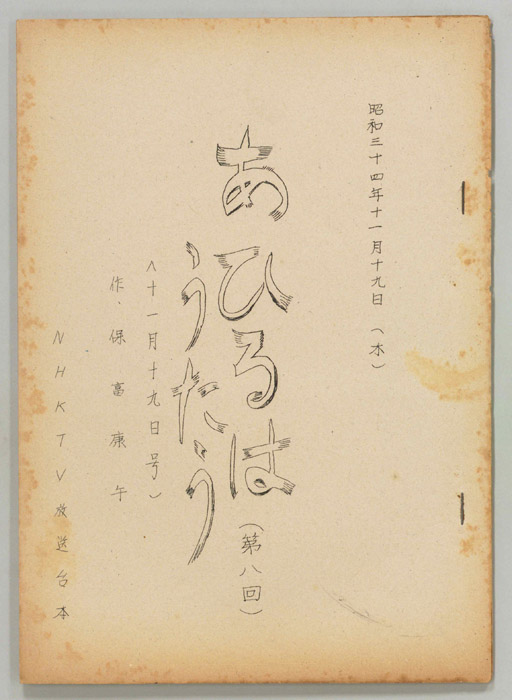 昭和三十四年十一月十九日(木)
あひるは(第八回)
うたう
〈十一月十九日号〉
作・保富康午
NHKTV放送台本